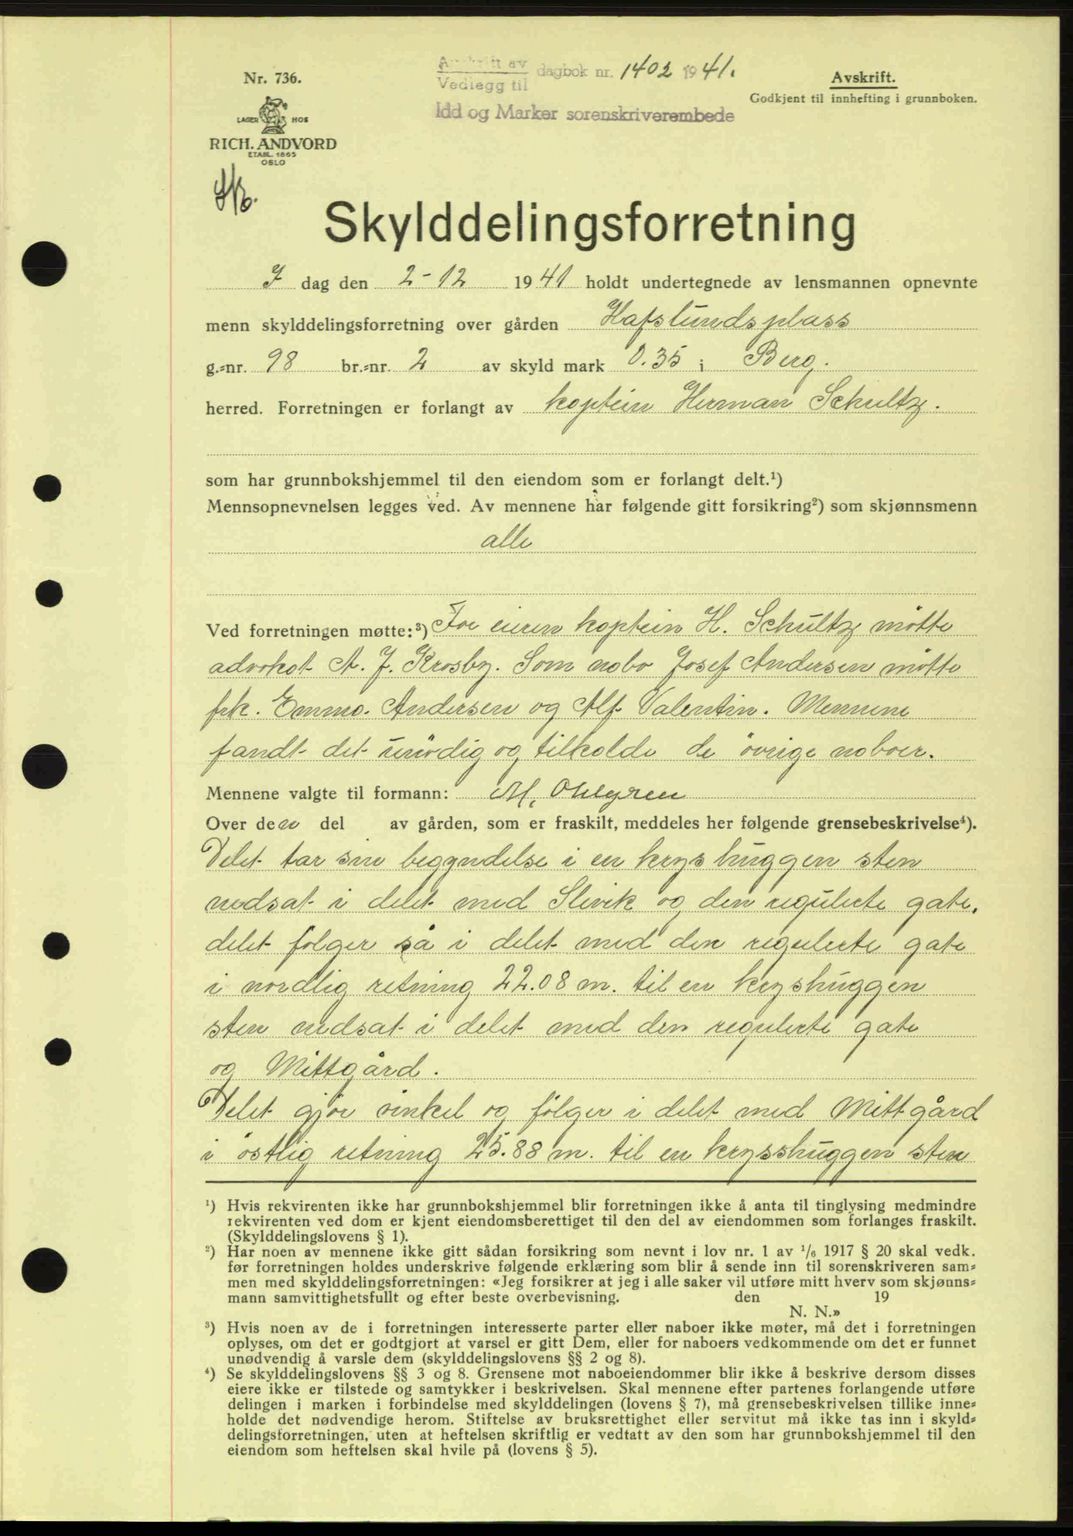 Nr. 736.
LAGER HOS
RICH. ANDVORD
ETABL. 1865
OSLO
Avskrift av
Vedlegg til
dagbok nr. 1402 1941.
Idd og Marker sorenskriverembede
Avskrift.
Godkjent til innhefting i grunnboken.
Skylddelingsforretning
I dag den 2-12 1941 holdt undertegnede av lensmannen opnevnte
menn skylddelingsforretning over gården Hafslundsplass
g.=nr. 98 br.=nr. 2 av skyld mark 0.35 i Berg.
herred. Forretningen er forlangt av kaptein Herman Schultz.
som har grunnbokshjemmel til den eiendom som er forlangt delt.¹)
Mennsopnevnelsen legges ved. Av mennene har følgende gitt forsikring²) som skjønnsmenn
alle
Ved forretningen møtte:³) For eieren kaptein H. Schultz møtte
advokat A. J. Krosby. Som nabo Josef Andersen møtte
frk. Emma Andersen og Alf Valentin. Mennene
fandt det unødig og tilkalde de øvrige naboer.
Mennene valgte til formann: M. Ohlgren
Over den del av gården, som er fraskilt, meddeles her følgende grensebeskrivelse⁴).
Delet tar sin begyndelse i en krys huggen sten
nedsat i delet med Slevik og den regulerte gate.
delet følger så i delet med den regulerte gate
i nordlig retning 22.08 m. til en kryshuggen
sten nedsat i delet med den regulerte gate
og Mittgård.
Delet gjør vinkel og følger i delet med Mittgård
i østlig retning 25.88 m. til en krysshuggen sten
¹) Hvis rekvirenten ikke har grunnbokshjemmel blir forretningen ikke å anta til tinglysing medmindre
rekvirenten ved dom er kjent eiendomsberettiget til den del av eiendommen som forlanges fraskilt.
(Skylddelingslovens § 1).
²) Har noen av mennene ikke gitt sådan forsikring som nevnt i lov nr. 1 av ¹/₆ 1917 § 20 skal vedk.
før forretningen holdes underskrive følgende erklæring som blir å sende inn til sorenskriveren sam=
men med skylddelingsforretningen: «Jeg forsikrer at jeg i alle saker vil utføre mitt hverv som skjønns=
mann samvittighetsfullt og efter beste overbevisning. den 19
N. N.»
³) Hvis noen av de i forretningen interesserte parter eller naboer ikke møter, må det i forretningen
oplyses, om det er godtgjort at varsel er gitt Dem, eller for naboers vedkommende om det er funnet
unødvendig å varsle dem (skylddelingslovens §§ 2 og 8).
⁴) Se skylddelingslovens §§ 3 og 8. Grensene mot naboeiendommer blir ikke å beskrive dersom disses
eiere ikke er tilstede og samtykker i beskrivelsen. Skal mennene efter partenes forlangende utføre
delingen i marken i forbindelse med skylddelingen (lovens § 7), må grensebeskrivelsen tillike inne=
holde det nødvendige herom. Stiftelse av bruksrettighet eller servitut må ikke tas inn i skyld=
delingsforretningen, uten at heftelsen skriftlig er vedtatt av den som har grunnbokshjemmel til den
eiendom som heftelsen skal hvile på (lovens § 5).